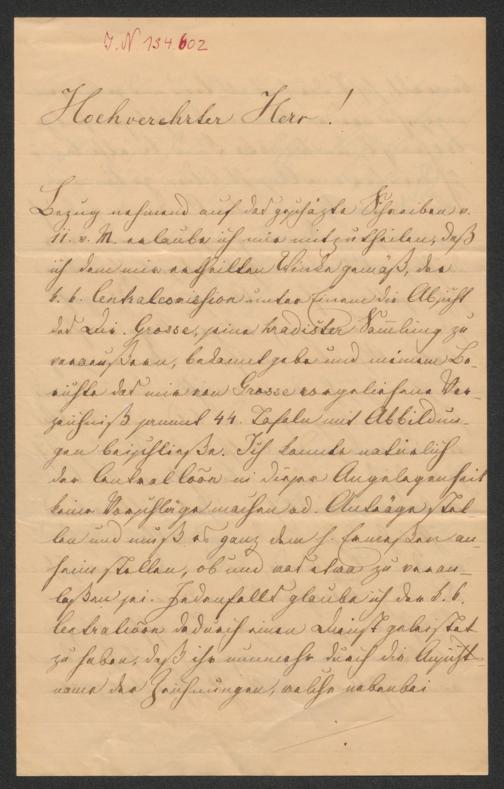 J. N 134.602
Hochverehrter Herr!
Bezug nehmend auf das geschäzte Schreiben v.
11. v. M. erlaube ich mir mitzutheilen, daß
ich dem mir ertheilten Winke gemäß, der
k. k. Centralcomission unter Einem die Absicht
des Dr. Grosse, seine Hradišter Sammlung zu
veraeußern, bekannt gebe und meinem Be-
richte das mir von Grosse vorgeliehene Ver-
zeichniß sammt 44. Tafeln mit Abbildun-
gen beischließe. Ich konnte natürlich
der Centralcoon in dieser Angelegenheit
keine Vorschläge machen od. Anträge stel
len und muß es ganz dem h. Ermeßen an-
heim stellen, ob und was etwa zu veran-
laßen sei. Jedenfalls glaube ich der k. k.
Centralcoon dadurch einen Dienst geleistet
zu haben, daß ihr nunmehr durch die Ansicht-
name der Zeichnungen, welche nebenbei